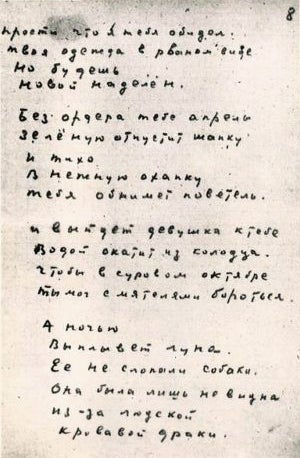 8
прости что я тебя обидел.
твоя одежда в рваном виде
Но будешь
новой наделён.
Без ордера тебе апрель
Зелёную отпустит шапку
и тихо
в нежную охапку
тебя обнимет поветель.
и выйдет девушка к тебе
Водой окатит из колодца.
Чтобы в суровом октябре
ты мог с мятелями бороться.
А ночью
Выплывет луна.
Ее не слопали собаки.
Она была лишь не видна
из-за людской
кровавой драки.